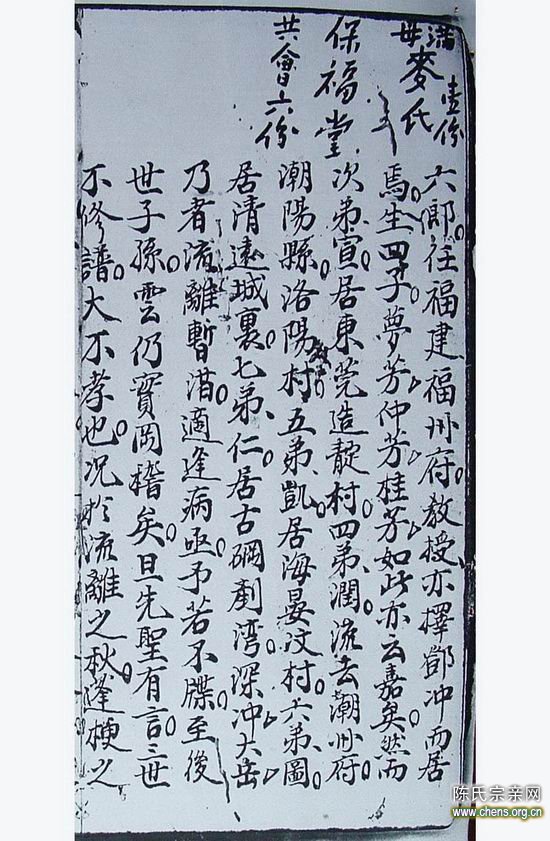 滿
母 麥氏 壹份
保福堂
共會六份
六郎任福建福州府教授亦擇鄧冲而居
焉生四子夢芳仲芳桂芳如此亦云嘉矣然而
次弟宣居東莞造靛村四弟潤流去潮州府
潮陽縣洛陽村五弟凱居海晏汶村六弟圖
居清遠城裏七弟仁居古硐劃湾深冲大岳
乃者流離暫潜適逢病亟予若不牒至後
世子孫雲仍實罔稽矣旦先聖有言三世
不修譜大不孝也况於流離之秋逢梗之
陈氏宗亲网
www.chens.org.cn